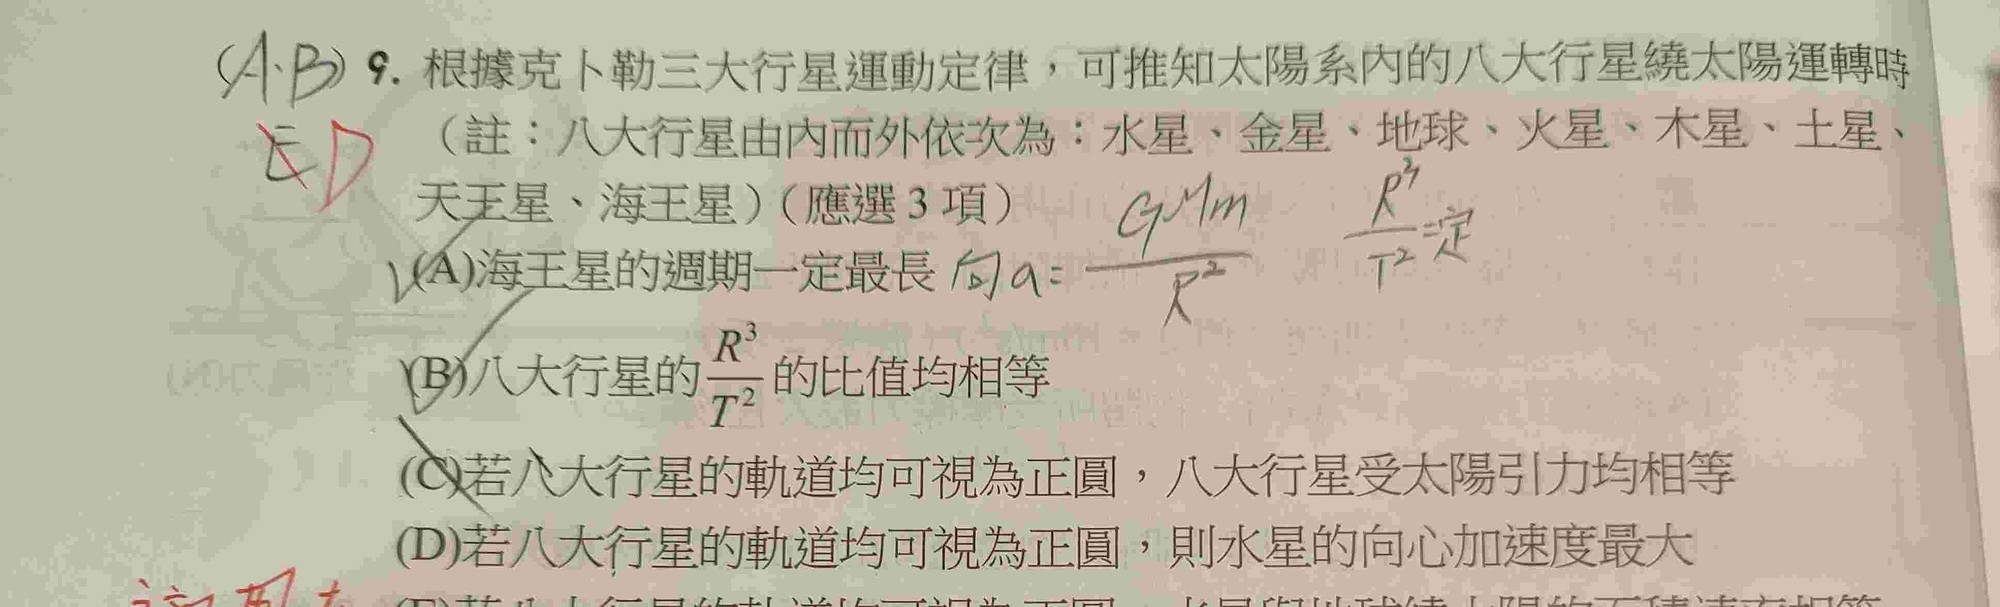 (A.B) 9. 根據克卜勒三大行星運動定律，可推知太陽系內的八大行星繞太陽運轉時
ED （註：八大行星由內而外依次為：水星、金星、地球、火星、木星、土星、
天王星、海王星）（應選3項）
(A)海王星的週期一定最長 向a= GMm/R² R³/T²=定
(B)八大行星的R³/T²的比值均相等
(C)若八大行星的軌道均可視為正圓，八大行星受太陽引力均相等
(D)若八大行星的軌道均可視為正圓，則水星的向心加速度最大